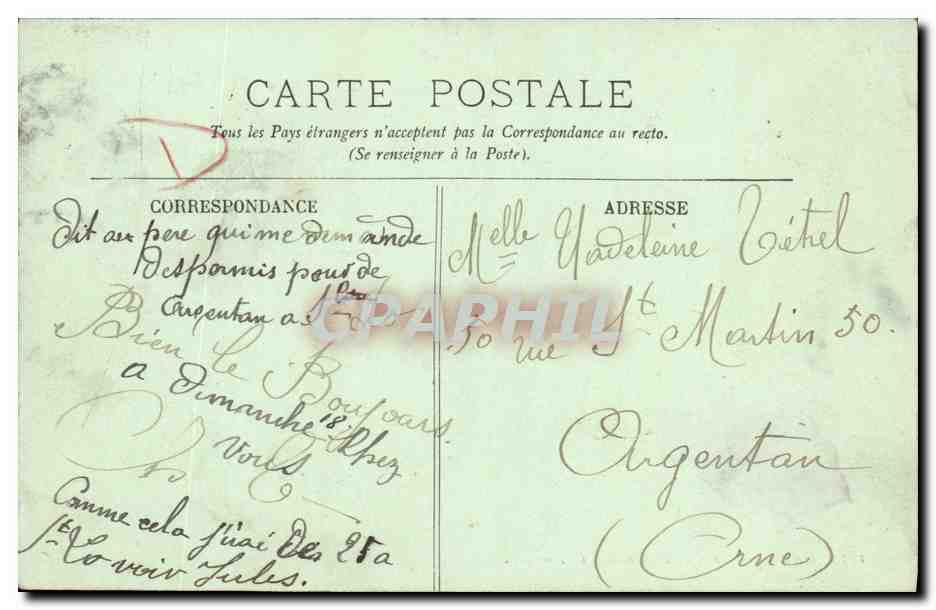 CARTE POSTALE
Tous les Pays étrangers n'acceptent pas la Correspondance au recto.
(Se renseigner à la Poste).
D
CORRESPONDANCE
Dit au pere qui me demande
des permis pour de
Argentan a St Lo
Bien le Bonjour
a Dimanche 18 Chez
Vous
Comme cela j'irai Dès 25 a
St Lo voir Jules.
ADRESSE
Melle Madeleine Tétrel
50 rue St Martin 50.
Argentan
(Orne)
CPARPHIL